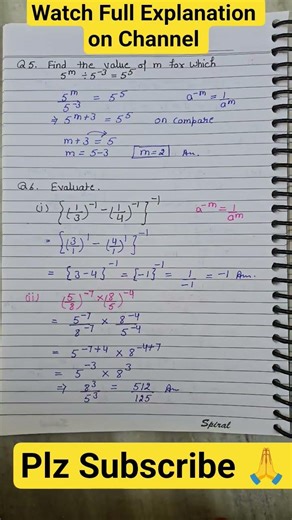 Watch Full Explanation
on Channel
Q5. Find the value of m for which
5^m ÷ 5^-3 = 5^5
5^m / 5^-3 = 5^5    a^-m = 1/a^m
⇒ 5^m+3 = 5^5 on compare
m+3 = 5
m = 5-3 m=2 An.
Q6. Evaluate.
(i) {(1/3)^-1 - (1/4)^-1}^-1    a^-m = 1/a^m
= {(3/1)^1 - (4/1)^1}^-1
= {3-4}^-1 = {-1}^-1 = 1/-1 = -1 Ans.
(ii) (5/8)^-7 × (8/5)^-4
= 5^-7/8^-7 × 8^-4/5^-4
= 5^-7+4 × 8^-4+7
= 5^-3 × 8^3
⇒ 8^3/5^3 = 512/125 An
Spiral
Plz Subscribe 🙏